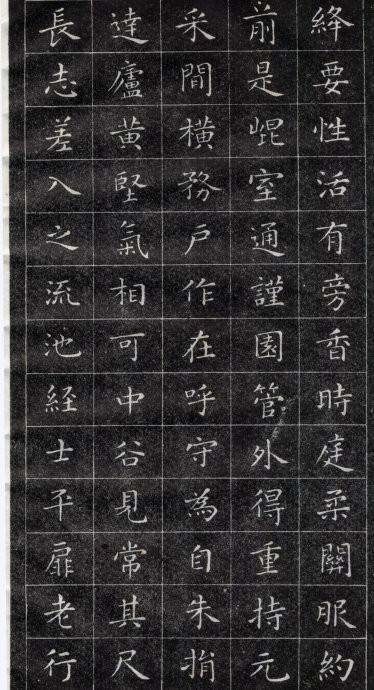 絳要性活有旁香時庭柔關服約
前是崐室通謹園管外得重持元
采間横務戶作在呼守為自朱
達廬黄堅氣相可中谷見常其尺
長志差入之流池経士平扉老行